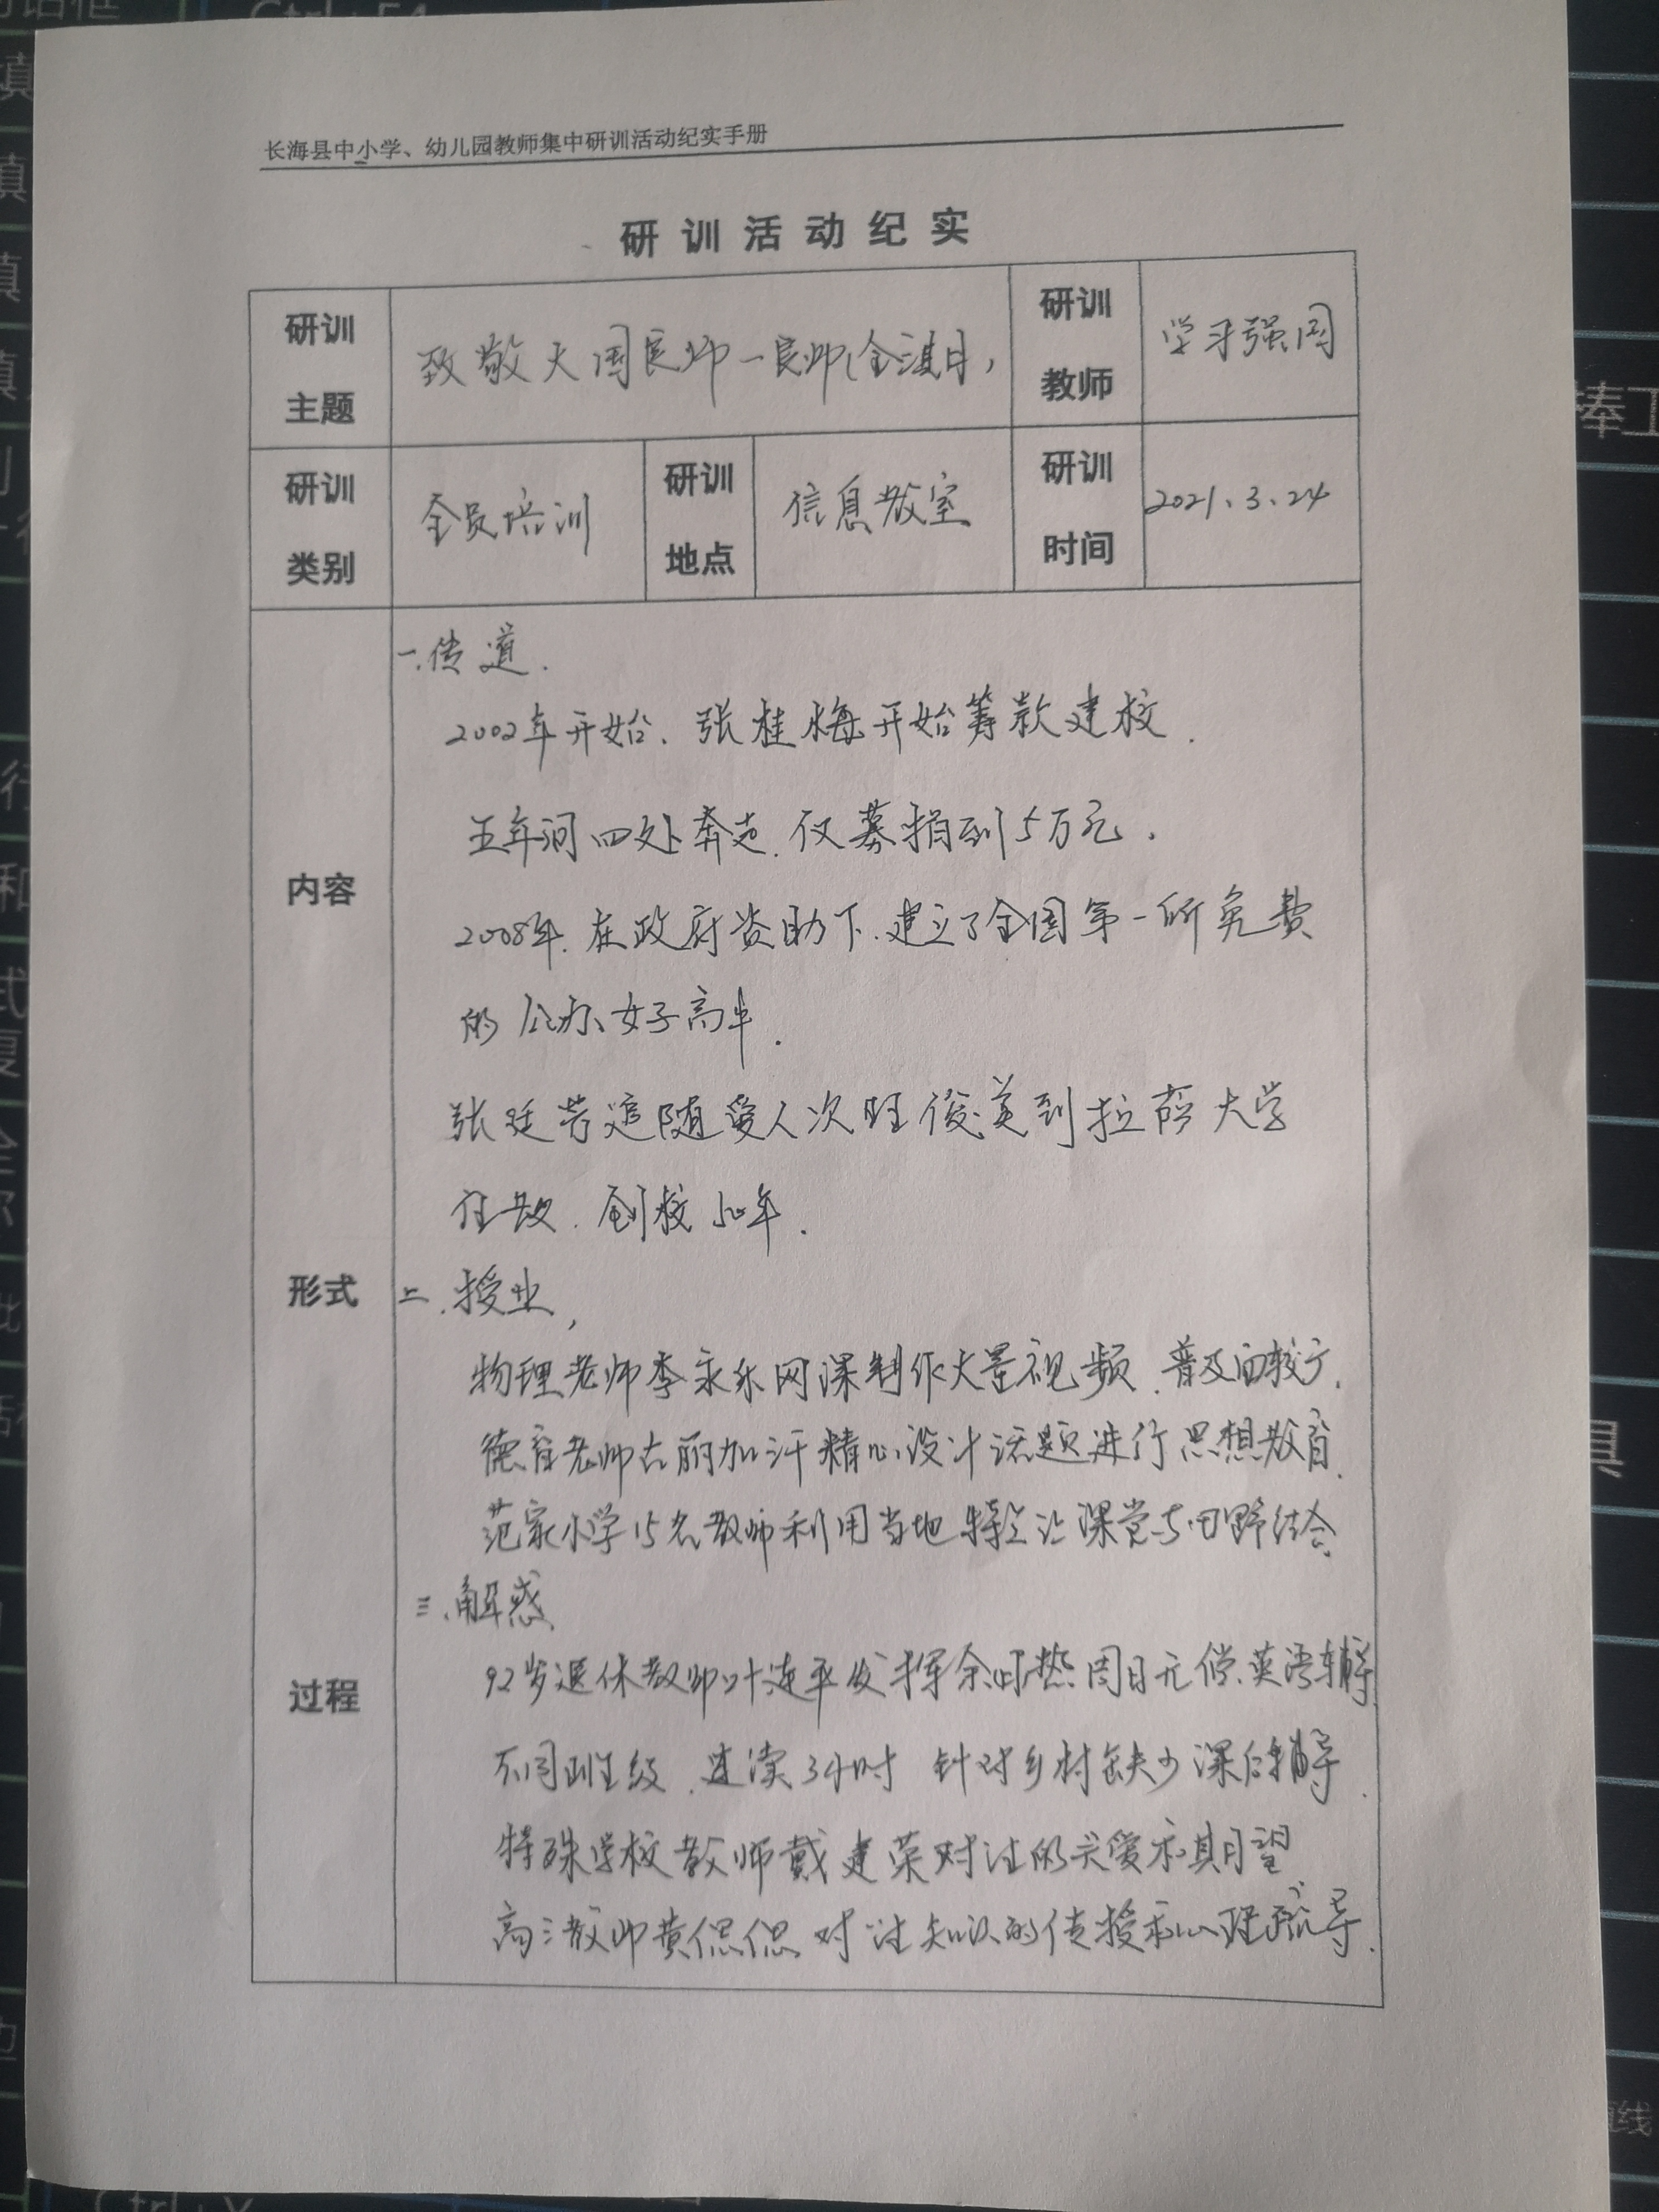 长海县中小学、幼儿园教师集中研训活动纪实手册
研训活动纪实
研训主题
致敬大国良师一良师(全
研训教师
学习强国
研训类别
全员培训
研训地点
信息教室
研训时间
2021、3、24
内容
形式
过程
一.传道.
2002年开始、张桂梅开始筹款建校.
五年间四处奔走.仅募捐到5万元.
2008年.在政府资助下.建立了全国第一所免费
的公办女子高中.
张廷芳追随爱人次旺俊美到拉萨大学
任教.创校50年.
二.授业,
物理老师李永乐网课制作大量视频.普及面较广.
德育老师古丽加汗精心设计话题进行思想教育.
范家小学15名教师利用当地特征让课堂与田野结合.
三.解惑
92岁退休教师叶连平发挥余热周日无偿.英语辅导.
不同班级.连续3小时 针对乡村缺少课后辅导.
特殊学校教师戴建荣对生的关爱和期望
高三教师黄侃侃对生知识的传授和心理疏导.